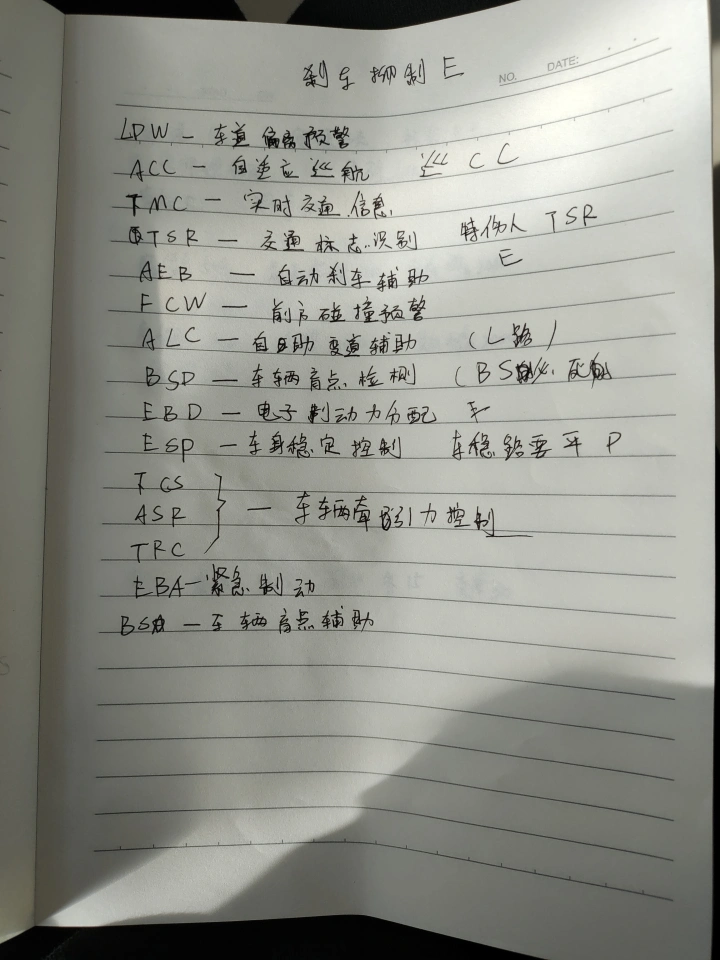 刹车抑制 E
NO. DATE:
LDW — 车道偏离预警
ACC — 自适应巡航 巡 CC
TMC — 实时交通信息
TSR — 交通标志识别 特伤人 TSR
AEB — 自动刹车辅助 E
FCW — 前方碰撞预警
ALC — 自动变道辅助 (L路)
BSD — 车辆盲点检测 (BS
EBD — 电子制动力分配
ESP — 车身稳定控制 车稳路要平 P
TCS
ASR — 车辆牵引力控制
TRC
EBA — 紧急制动
BSA — 车辆盲点辅助